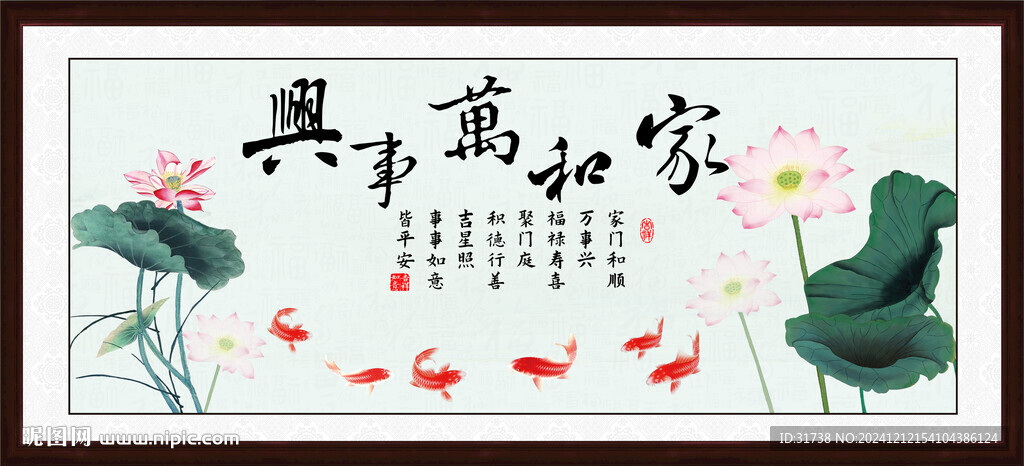 家和萬事興
家门和顺
万事兴
福禄寿喜
聚门庭
积德行善
吉星照
事事如意
皆平安
吉祥
吉祥如意
昵图网 www.nipic.com
ID:31738 NO:20241212154104386124